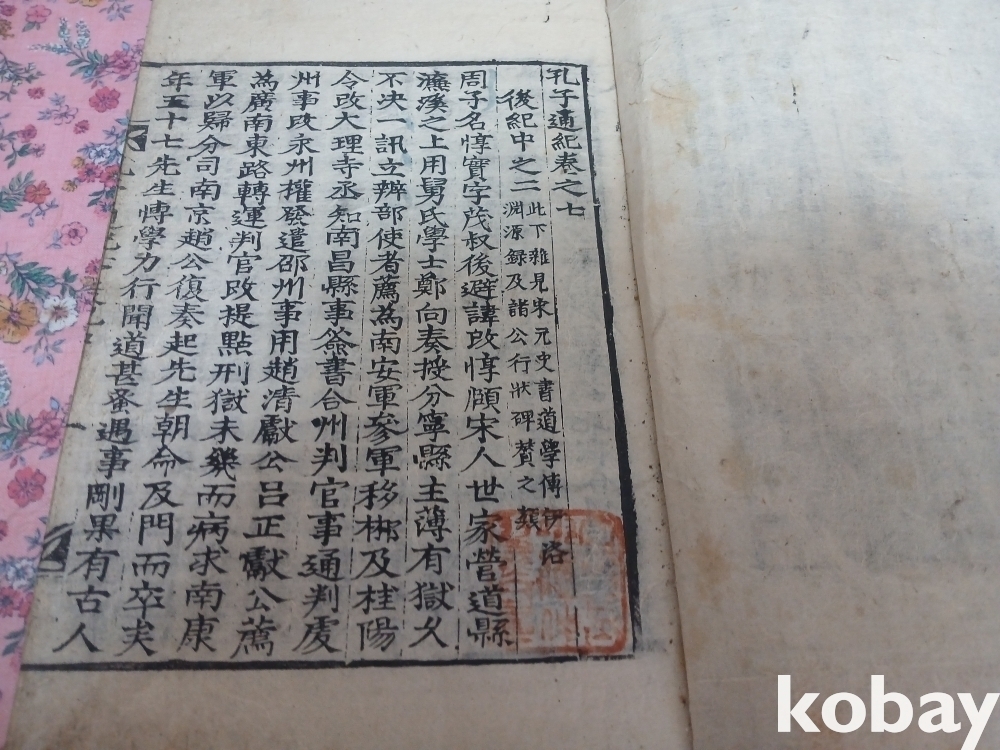 孔子通紀卷之七
後紀中之二 此下雜見宋元史書道學傳伊洛
淵源錄及諸公行狀碑贊之類
周子名惇實字茂叔後避諱改惇頤宋人世家營道縣
濂溪之上用舅氏學士鄭向奏授分寧縣主薄有獄久
不决一訊立辨部使者薦為南安軍參軍移郴及桂陽
令改大理寺丞知南昌縣事簽書合州判官事通判虔
州事改永州權發遣邵州事用趙清獻公呂正獻公薦
為廣南東路轉運判官改提點刑獄未幾而病求南康
軍以歸分司南京趙公復奏起先生朝命及門而卒矣
年五十七先生博學力行聞道甚蚤遇事剛果有古人
kobay